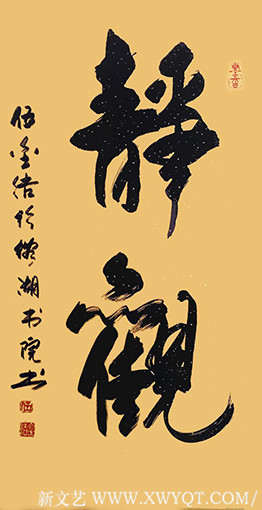 靜觀
伍金浩於鏡湖书院书
新文艺 WWW.XWYQT.COM/